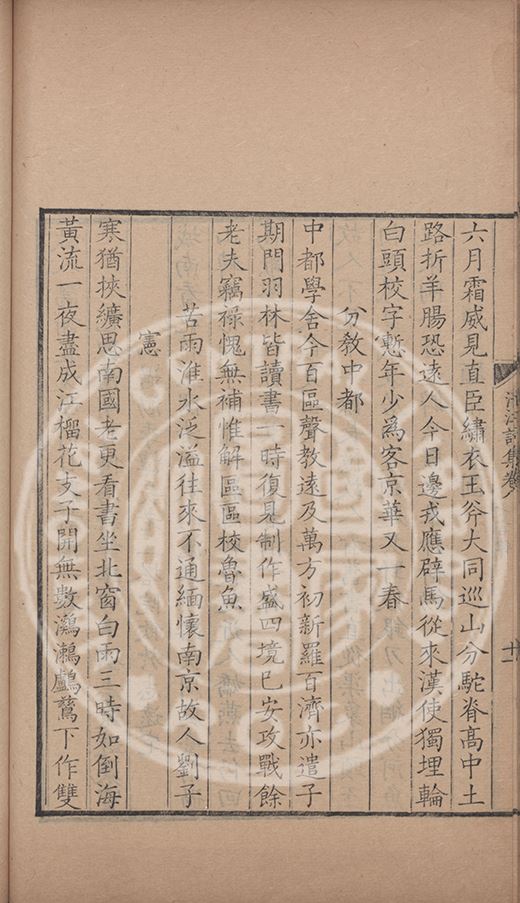 六月霜威見直臣繡衣玉斧大同巡山分駝脊高中土
路折羊腸恐遠人今日邊戎應辟馬從來漢使獨埋輪
白頭校字慙年少爲客京華又一春
分教中都
中都學舍今百區聲教遠及萬方初新羅百濟亦遣子
期門羽林皆讀書一時復見制作盛四境已安攻戰餘
老夫竊祿愧無補惟解區區校魯魚
苦雨淮水泛溢往來不通緬懷南京故人劉子
憲
寒猶挾纊思南國老更看書坐北窗白雨三時如倒海
黃流一夜盡成江榴花支子開無數鸂鷘鸕鶿下作雙